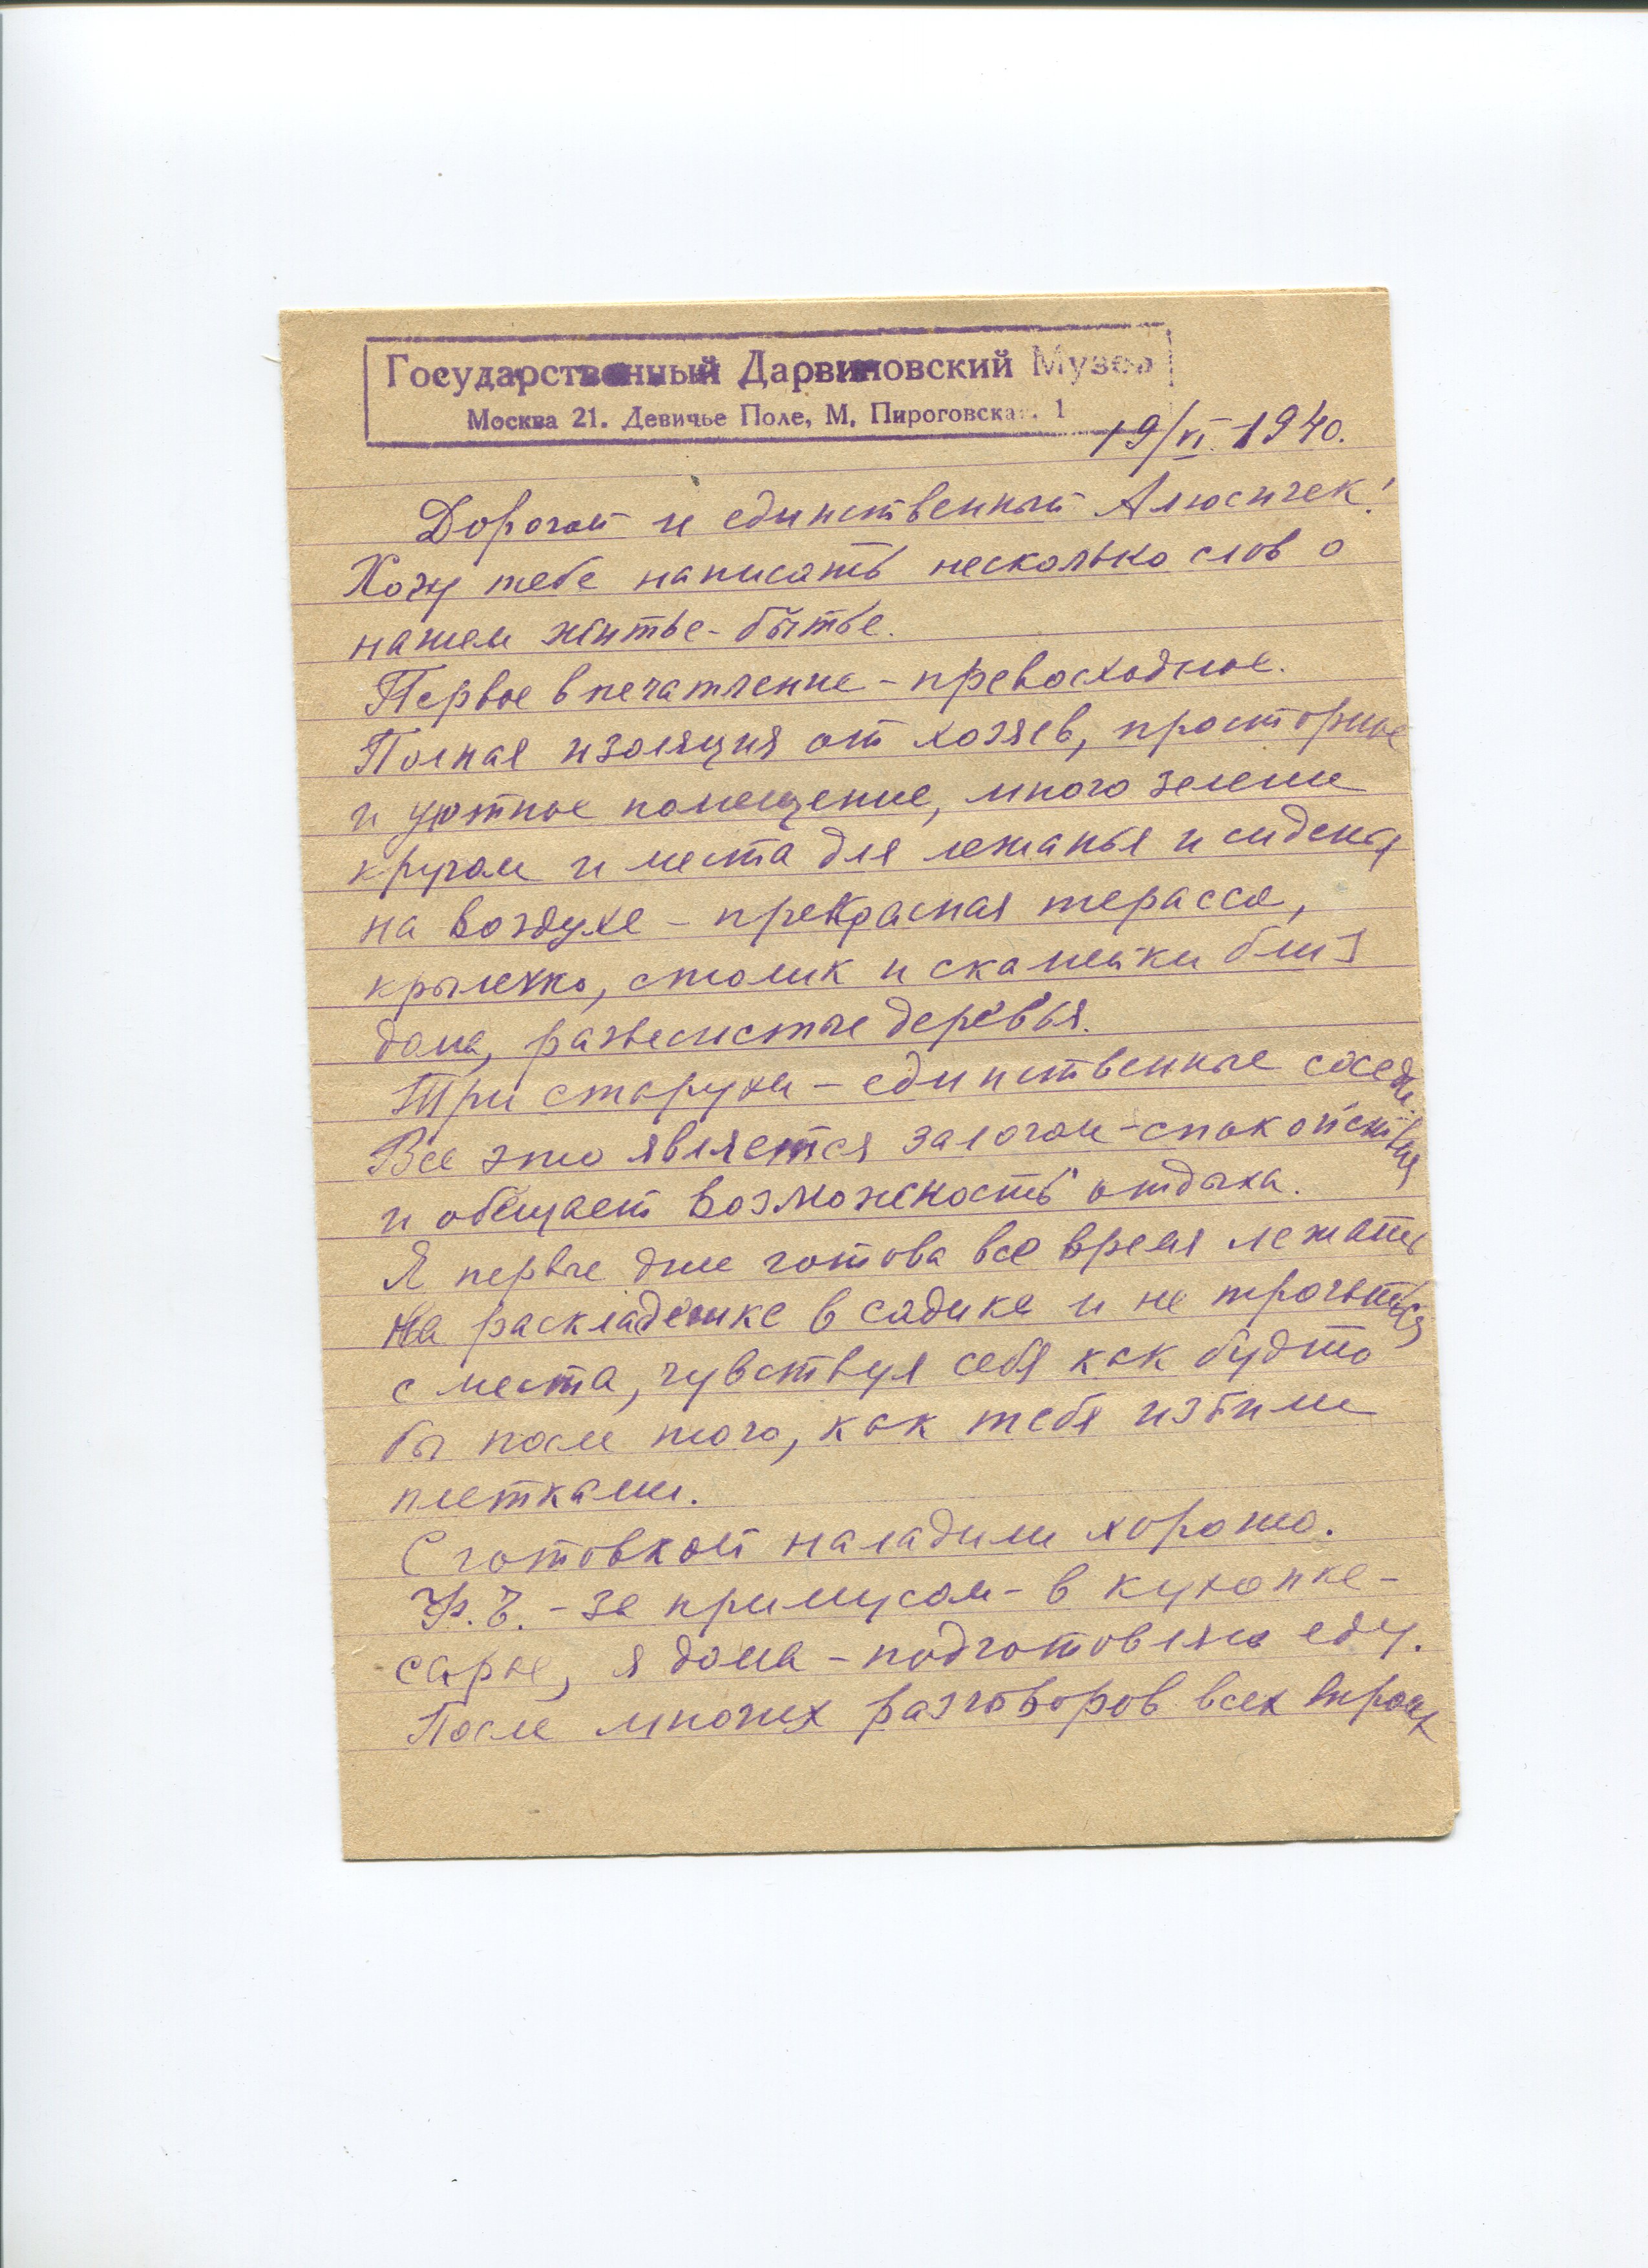 Государственный Дарвиновский Музей
Москва 21. Девичье Поле, М. Пироговская, 1
19/VI 1940.
Дорогой и единственный Алюсичек!
Хочу тебе написать несколько слов о
нашем житье-бытье.
Первое впечатление - превосходное.
Полная изоляция от хозяев, просторное
и уютное помещение, много зелени
кругом и места для лежанья и сиденья
на воздухе - прекрасная терасса,
крылечко, столик и скамейки близ
дома, развесистые деревья.
Три старухи - единственные соседи.
Все это является залогом спокойствия
и обещает возможность отдыха.
Я первые дни готова все время лежать
на раскладушке в садике и не трогаться
с места, чувствуя себя как будто
бы после того, как тебя избили
плетками.
С готовкой наладили хорошо.
Ф.Е. - за примусом - в кухоньке -
сарае, я дома - подготовляю еду.
После многих разговоров всех троих